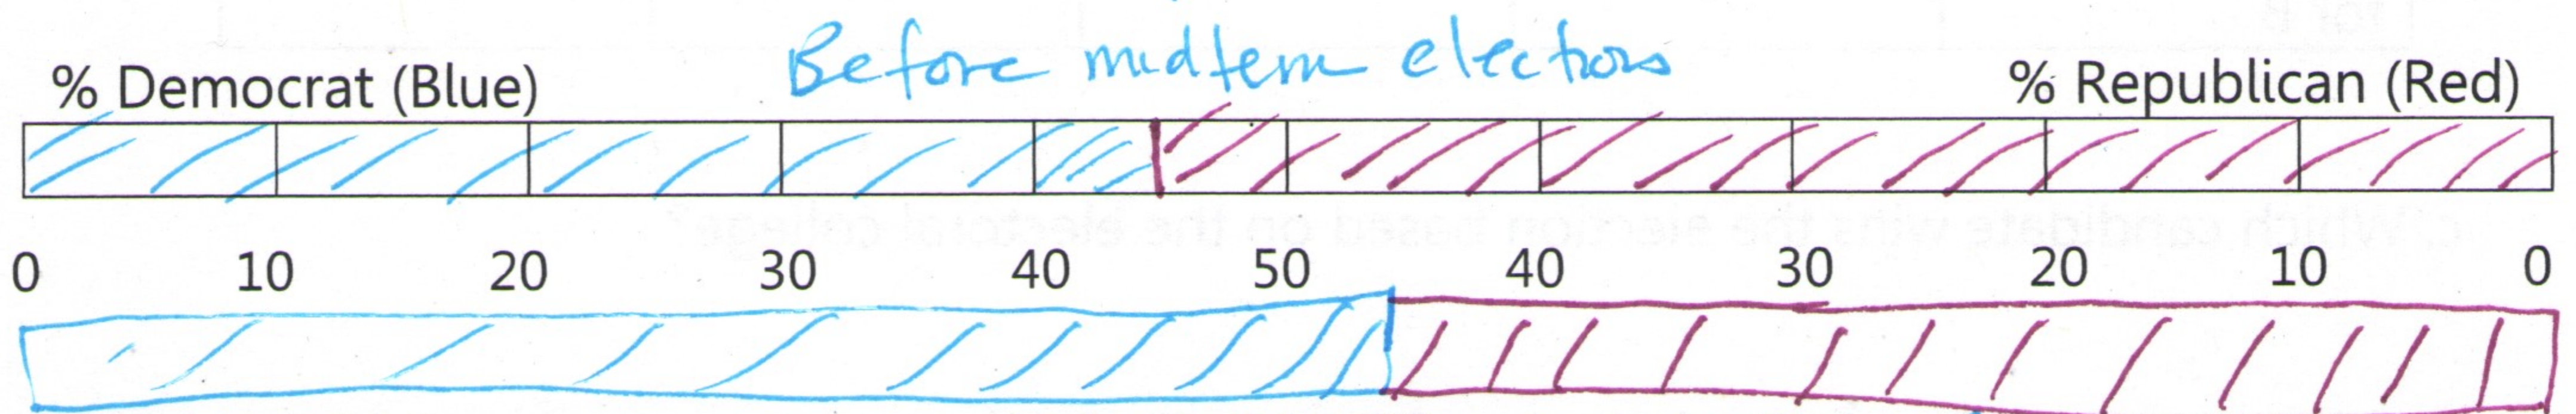 Before midterm elections
% Democrat (Blue) % Republican (Red)
0 10 20 30 40 50 40 30 20 10 0